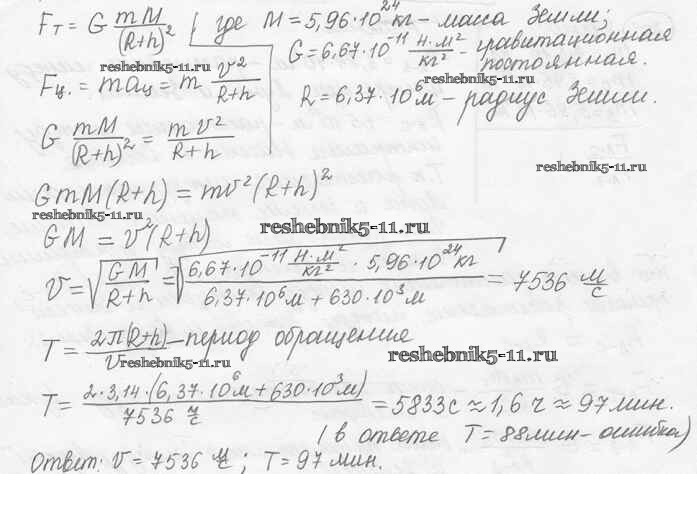 F_T = G mM/(R+h)² где M = 5,96·10²⁴ кг - масса Земли;
G = 6,67·10⁻¹¹ Н·м²/кг² - гравитационная постоянная.
reshebnik5-11.ru
reshebnik5-11.ru
Fц. = maц = m v²/(R+h)
R = 6,37·10⁶ м - радиус Земли.
G mM/(R+h)² = mv²/(R+h)
reshebnik5-11.ru
GmM(R+h) = mv²(R+h)²
reshebnik5-11.ru
reshebnik5-11.ru
GM = v²(R+h)
v = √(GM/(R+h)) = √((6,67·10⁻¹¹ Н·м²/кг² · 5,96·10²⁴ кг)/(6,37·10⁶ м + 630·10³ м)) = 7536 м/с
T = 2π(R+h)/v - период обращения
reshebnik5-11.ru
reshebnik5-11.ru
T = 2·3,14·(6,37·10⁶ м + 630·10³ м)/(7536 м/с) = 5833 с ≈ 1,6 ч ≈ 97 мин.
(в ответе T = 88 мин - ошибка)
Ответ: v = 7536 м/с; T = 97 мин.